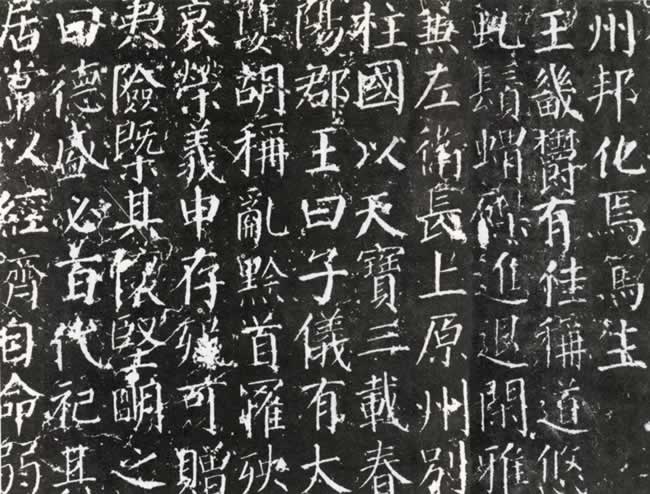 州邦化焉篤生
王畿欝有佳稱道悠
虬鬚蝟磔進退閑雅
兼左衛長上原州別
柱國以天寶三載春
陽郡王曰子儀有大
胡稱亂黔首罹殃
哀榮義申存歿可贈
夷險既其懷堅明之
曰德盛必百代祀其
居常以經濟自命弱